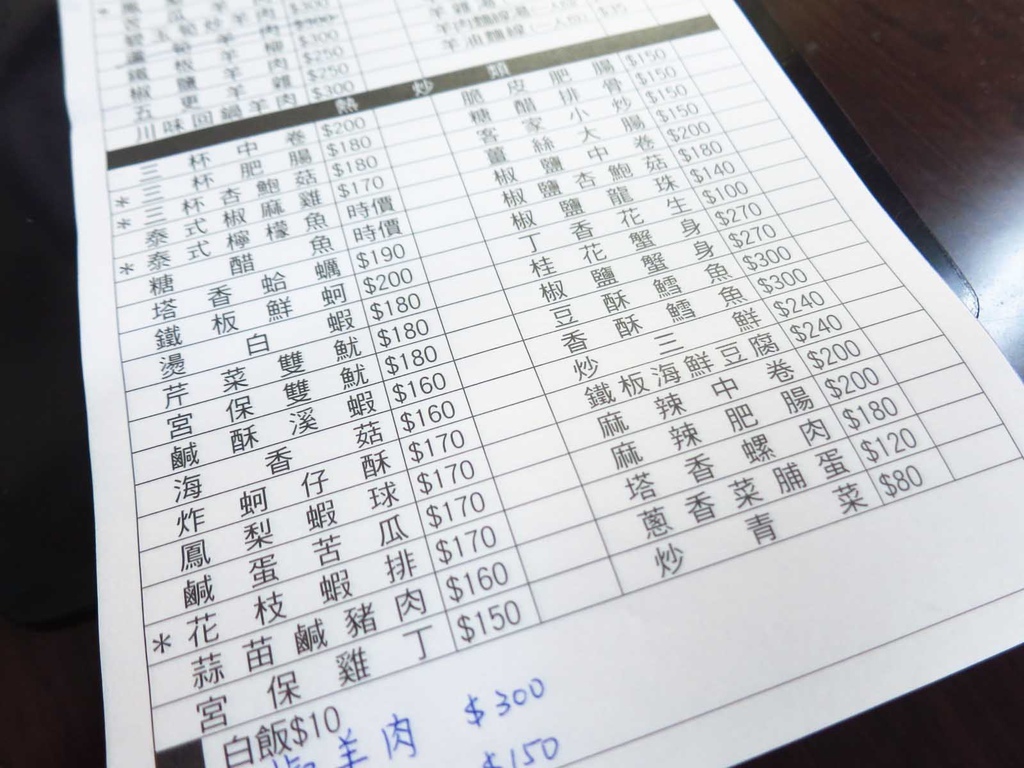 鐵板羊柳 $300
椒鹽羊肉 $250
五更羊雜 $250
川味回鍋羊肉 $300
熱炒類
三杯中卷 $200 脆皮肥腸 $150
*三杯肥腸 $180 糖醋排骨 $150
*三杯杏鮑菇 $180 客家小炒 $150
泰式椒麻雞 $170 薑絲大腸 $150
*泰式檸檬魚 時價 椒鹽中卷 $200
糖醋魚 時價 椒鹽杏鮑菇 $180
塔香蛤蠣 $190 椒鹽龍珠 $140
鐵板鮮蚵 $200 丁香花生 $100
燙白蝦 $180 桂花蟹身 $270
芹菜雙魷 $180 椒鹽蟹身 $270
宮保雙魷 $180 豆酥鱈魚 $300
鹹酥溪蝦 $160 香酥鱈魚 $300
海香菇 $160 炒三鮮 $240
炸蚵仔酥 $170 鐵板海鮮豆腐 $240
鳳梨蝦球 $170 麻辣中卷 $200
鹹蛋苦瓜 $170 麻辣肥腸 $200
*花枝蝦排 $170 塔香螺肉 $180
蒜苗鹹豬肉 $160 蔥香菜脯蛋 $120
宮保雞丁 $150 炒青菜 $80
白飯$10
羊肉 $300
$150